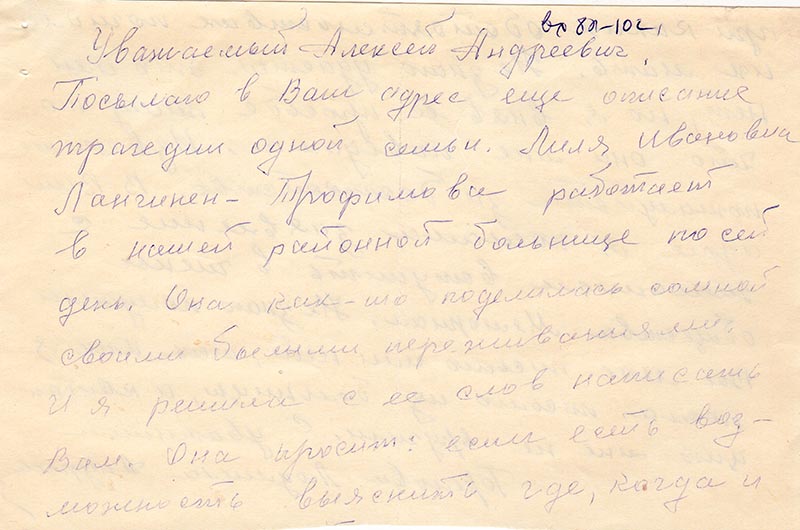 вх 88-10с,
Уважаемый Алексей Андреевич,
Посылаю в Ваш адрес еще описание
трагедии одной семьи. Лиля Ивановна
Лангинен-Трофимова работает
в нашей районной больнице по сей
день. Она как-то поделилась со мной
своими былыми переживаниями.
И я решила с ее слов написать
Вам. Она просит: если есть воз-
можность выяснить где, когда и